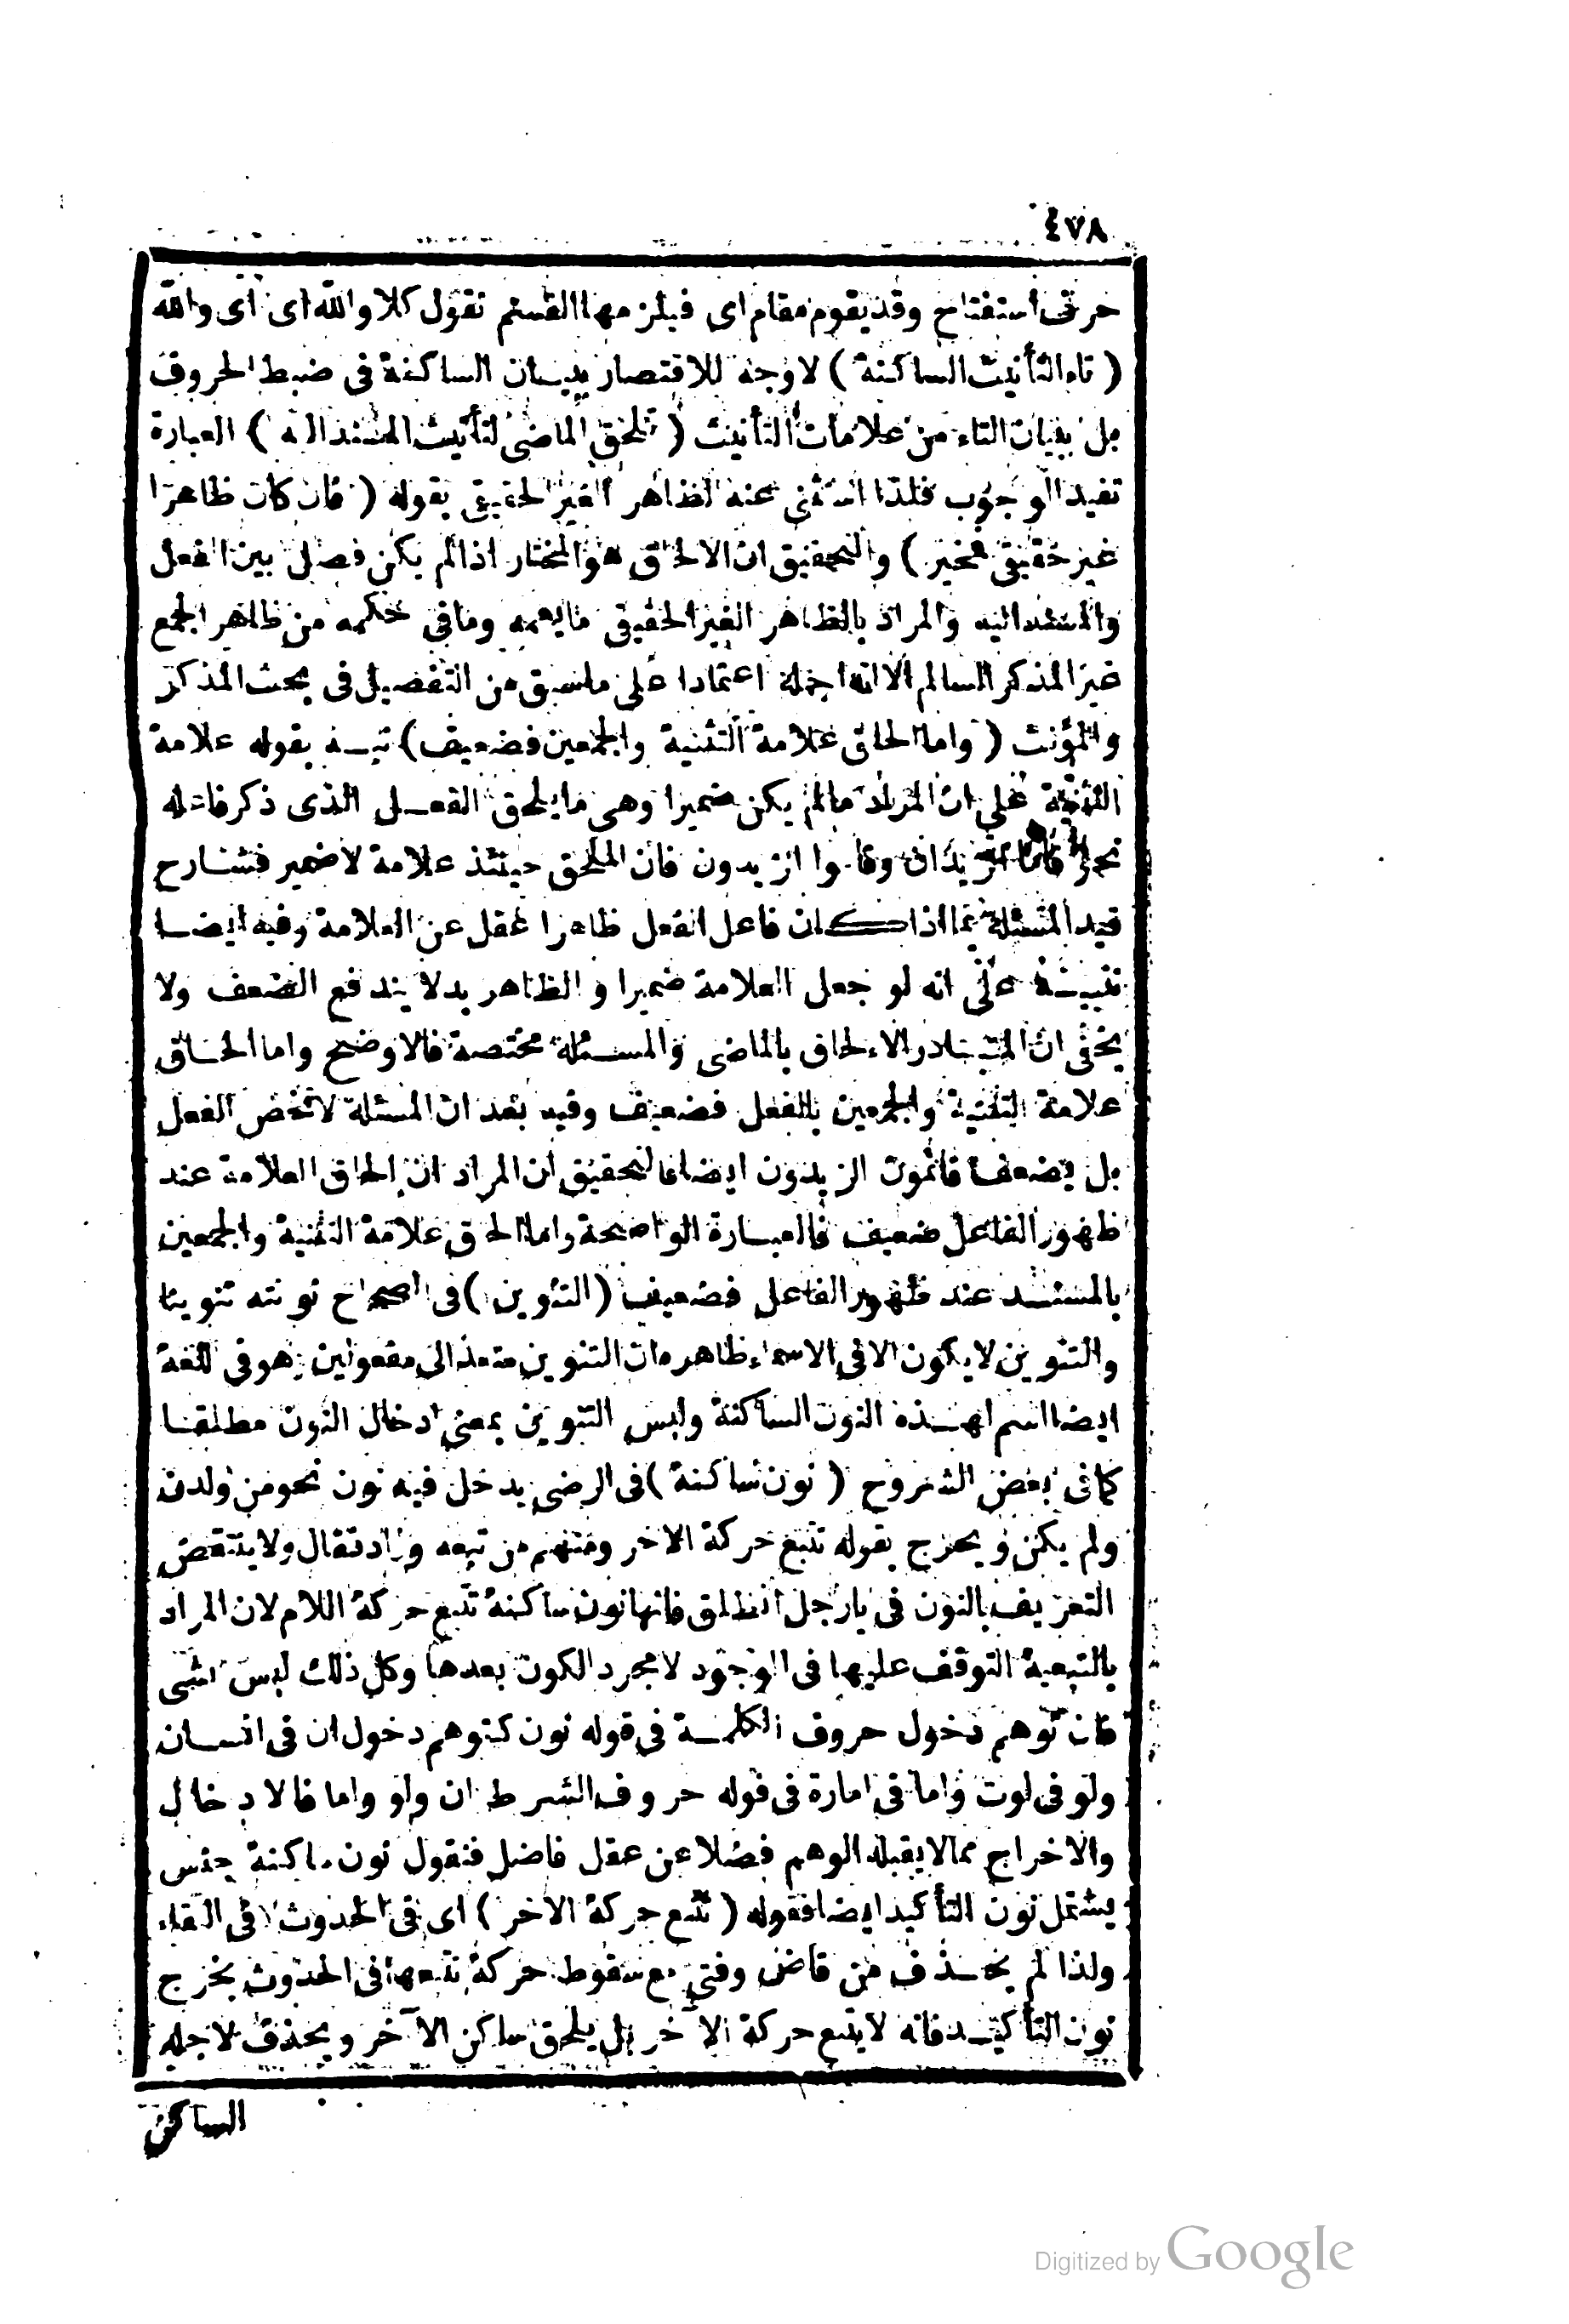 ٤٧٨
حرفى استفتاح وقد يقوم مقام اى فيلزمها القسم تقول كلا والله اى اى والله
( تاء التأنيث الساكنة ) لا وجه للاقتصار ببيان الساكنة فى ضبط الحروف
بل بيان التاء من علامات التأنيث ( تلحق الماضى لتأنيث المسند اليه ) العبارة
تفيد الوجوب فلذا استثنى عنه الظاهر الغير الحقيقى بقوله ( فان كان ظاهرا
غير حقيقى فمخير ) والتحقيق ان الالحاق هو المختار اذا لم يكن فصل بين الفعل
والمسند اليه والمراد بالظاهر الغير الحقيقى ما يعمه وما فى حكمه من ظاهر الجمع
غير المذكر السالم الا انه اجمله اعتمادا على ما سبق من التفصيل فى بحث المذكر
والمؤنث ( واما الحاق علامة التثنية والجمعين فضعيف ) نبه بقوله علامة
التثنية على ان المراد ما لم يكن ضميرا وهى ما يلحق الفعل الذى ذكر فاعله
نحو قاما الزيدان وقاموا الزيدون فان الملحق حينئذ علامة لا ضمير فشارح
قيد المسئلة بما اذا كان فاعل الفعل ظاهرا غفل عن العلامة وفيه ايضا
تنبيه على انه لو جعل العلامة ضميرا والظاهر بدلا يندفع الضعف ولا
يخفى ان المتبادر الالحاق بالماضى والمسئلة مختصة فالاوضح واما الحاق
علامة التثنية والجمعين بالفعل فضعيف وفيه بعد ان المسئلة لا تخص الفعل
بل يضعف قائمون الزيدون ايضا فالتحقيق ان المراد ان الحاق العلامة عند
ظهور الفاعل ضعيف فالعبارة الواضحة واما الحاق علامة التثنية والجمعين
بالمسند عند ظهور الفاعل فضعيف ( التنوين ) فى الصحاح نونته تنوينا
والتنوين لا يكون الا فى الاسماء ظاهره ان التنوين متعد الى مفعولين وهو فى اللغة
ايضا اسم لهذه النون الساكنة وليس التنوين بمعنى ادخال النون مطلقا
كما فى بعض الشروح ( نون ساكنة ) فى الرضى يدخل فيه نون نحو من ولدن
ولم يكن ويخرج بقوله تتبع حركة الاخر ومنهم من تبعه وزاد فقال ولا ينتقض
التعريف بالنون فى يا رجل انطلق فانها نون ساكنة تتبع حركة اللام لان المراد
بالتبعية التوقف عليها فى الوجود لا مجرد الكون بعدها وكل ذلك ليس بشى
فان توهم دخول حروف الكلمة فى قوله نون كتوهم دخول ان فى انسان
ولو فى لوت واما فى امارة فى قوله حروف الشرط ان ولو واما فالادخال
والاخراج مما لا يقبله الوهم فضلا عن عقل فاضل فنقول نون ساكنة جنس
يشتمل نون التأكيد ايضا فقوله ( تتبع حركة الاخر ) اى فى الحدوث لا فى البقاء
ولذا لم يحذف من قاض وفتى مع سقوط حركة تتبعها فى الحدوث يخرج
نون التأكيد فانه لا يتبع حركة الآخر بل يلحق ساكن الآخر ويحذف لاجله
الساكن
Digitized by Google